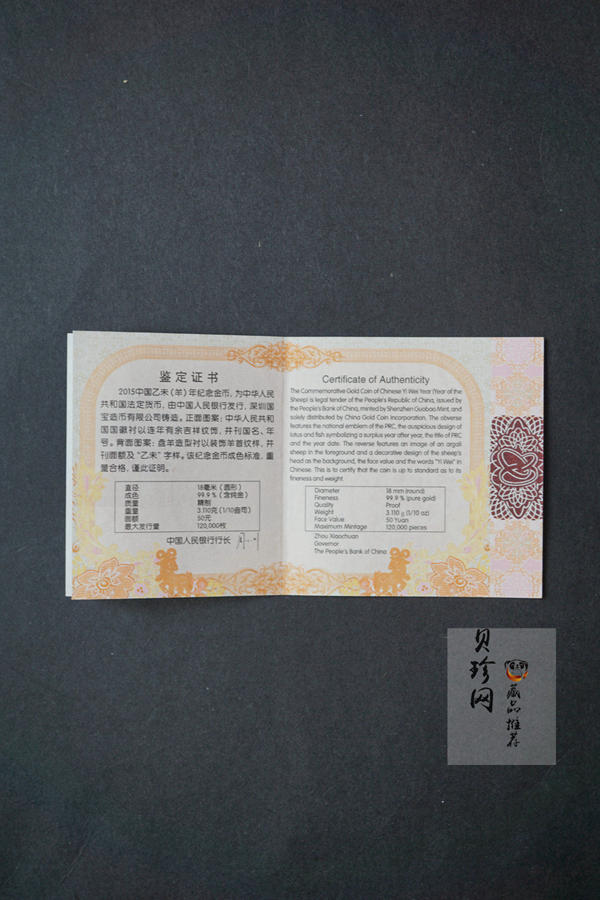 鉴定证书
2015中国乙未(羊)年纪念金币，为中华人民
共和国法定货币，由中国人民银行发行，深圳国
宝造币有限公司铸造。正面图案：中华人民共和
国国徽衬以连年有余吉祥纹饰，并刊国名、年
号。背面图案：盘羊造型衬以装饰羊首纹样，并
刊面额及“乙未”字样。该纪念金币成色标准，重
量合格，谨此证明。
直径 18毫米（圆形）
成色 99.9％（含纯金）
质量 精制
重量 3.110克(1/10盎司)
面额 50元
最大发行量 120,000枚
中国人民银行行长
Certificate of Authenticity
The Commemorative Gold Coin of Chinese Yi Wei Year (Year of the
Sheep) is legal tender of the People's Republic of China, issued by
the People's Bank of China, minted by Shenzhen Guobao Mint, and
solely distributed by China Gold Coin Incorporation. The obverse
features the national emblem of the PRC, the auspicious design of
lotus and fish symbolizing a surplus year after year, the title of PRC
and the year date. The reverse features an image of an argali
sheep in the foreground and a decorative design of the sheep's
head as the background, the face value and the words "Yi Wei" in
Chinese. This is to certify that the coin is up to standard as to its
fineness and weight.
Diameter 18 mm (round)
Fineness 99.9 % (pure gold)
Quality Proof
Weight 3.110 g (1/10 oz)
Face Value 50 Yuan
Maximum Mintage 120,000 pieces
Zhou Xiaochuan
Governor
The People's Bank of China
贝珍网
藏品推荐